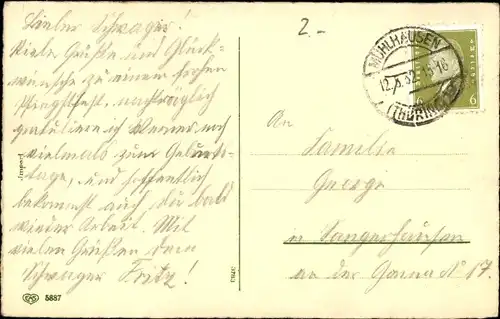 Lieber Schwager!
2.-
Viele Grüße und Glück-
wünsche zu einem frohen
Pfingstfest, nachträglich
gratuliere ich Werner noch
vielmals zum Geburts-
tage, und hoffentlich
bekommst auch du bald
wieder Arbeit. Mit
vielen Grüßen dein
Schwager Fritz!
MÜHLHAUSEN
12.5.32.15-16
(THÜRINGEN)
6
An
Familie
in Sangerhausen
an der Gonna N 17.
Import
5887